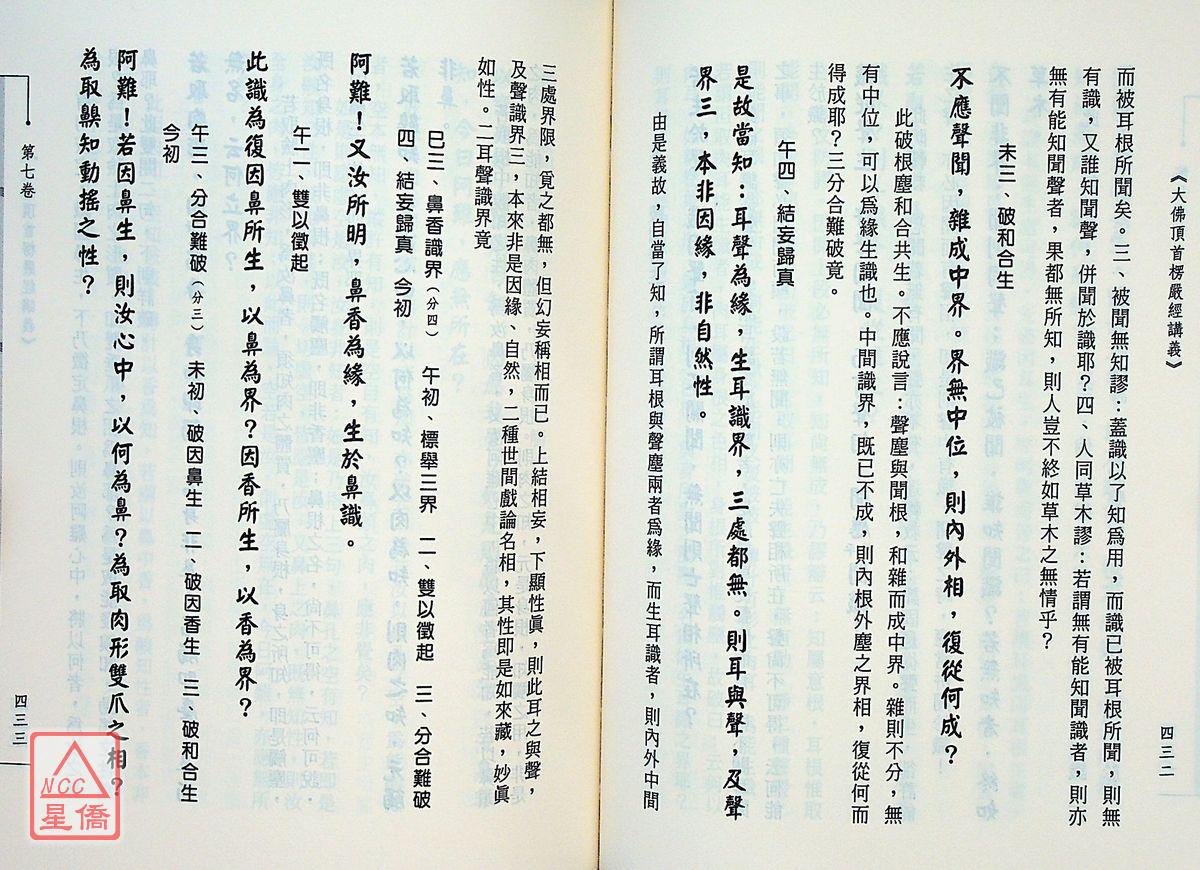 《大佛頂首楞嚴經講義》
四三二
而被耳根所聞矣。三、被聞無知謬：蓋識以了知爲用，而識已被耳根所聞，則無
有識，又誰知聞聲，併聞於識耶？四、人同草木謬：若謂無有能知聞識者，則亦
無有能知聞聲者，果都無所知，則人豈不終如草木之無情乎？
未三、破和合生
不應聲聞，雜成中界。界無中位，則內外相，復從何成？
此破根塵和合共生。不應說言：聲塵與聞根，和雜而成中界。雜則不分，無
有中位，可以爲緣生識也。中間識界，既已不成，則內根外塵之界相，復從何而
得成耶？三分合難破竟。
午四、結妄歸真
是故當知：耳聲為緣，生耳識界，三處都無。則耳與聲，及聲
界三，本非因緣，非自然性。
由是義故，自當了知，所謂耳根與聲塵兩者爲緣，而生耳識者，則內外中間
三處界限，覓之都無，但幻妄稱相而已。上結相妄，下顯性眞，則此耳之與聲，
及聲識界三，本來非是因緣、自然，二種世間戲論名相，其性即是如來藏，妙眞
如性。二耳聲識界竟
巳三、鼻香識界（分四）　午初、標舉三界　二、雙以徵起　三、分合難破
四、結妄歸真　今初
阿難！又汝所明，鼻香為緣，生於鼻識。
午二、雙以徵起
此識為復因鼻所生，以鼻為界？因香所生，以香為界？
午三、分合難破（分三）　未初、破因鼻生　二、破因香生　三、破和合生
今初
阿難！若因鼻生，則汝心中，以何為鼻？為取肉形雙爪之相？
為取齅知動搖之性？
第七卷
四三三
NCC
星僑